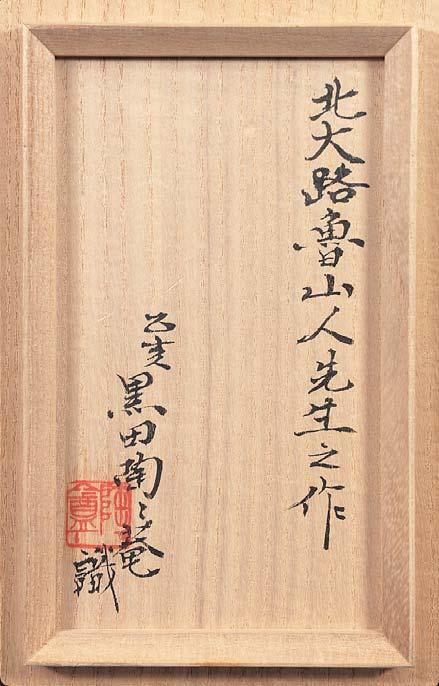 北大路魯山人先生之作
乙亥
黒田陶々菴
識